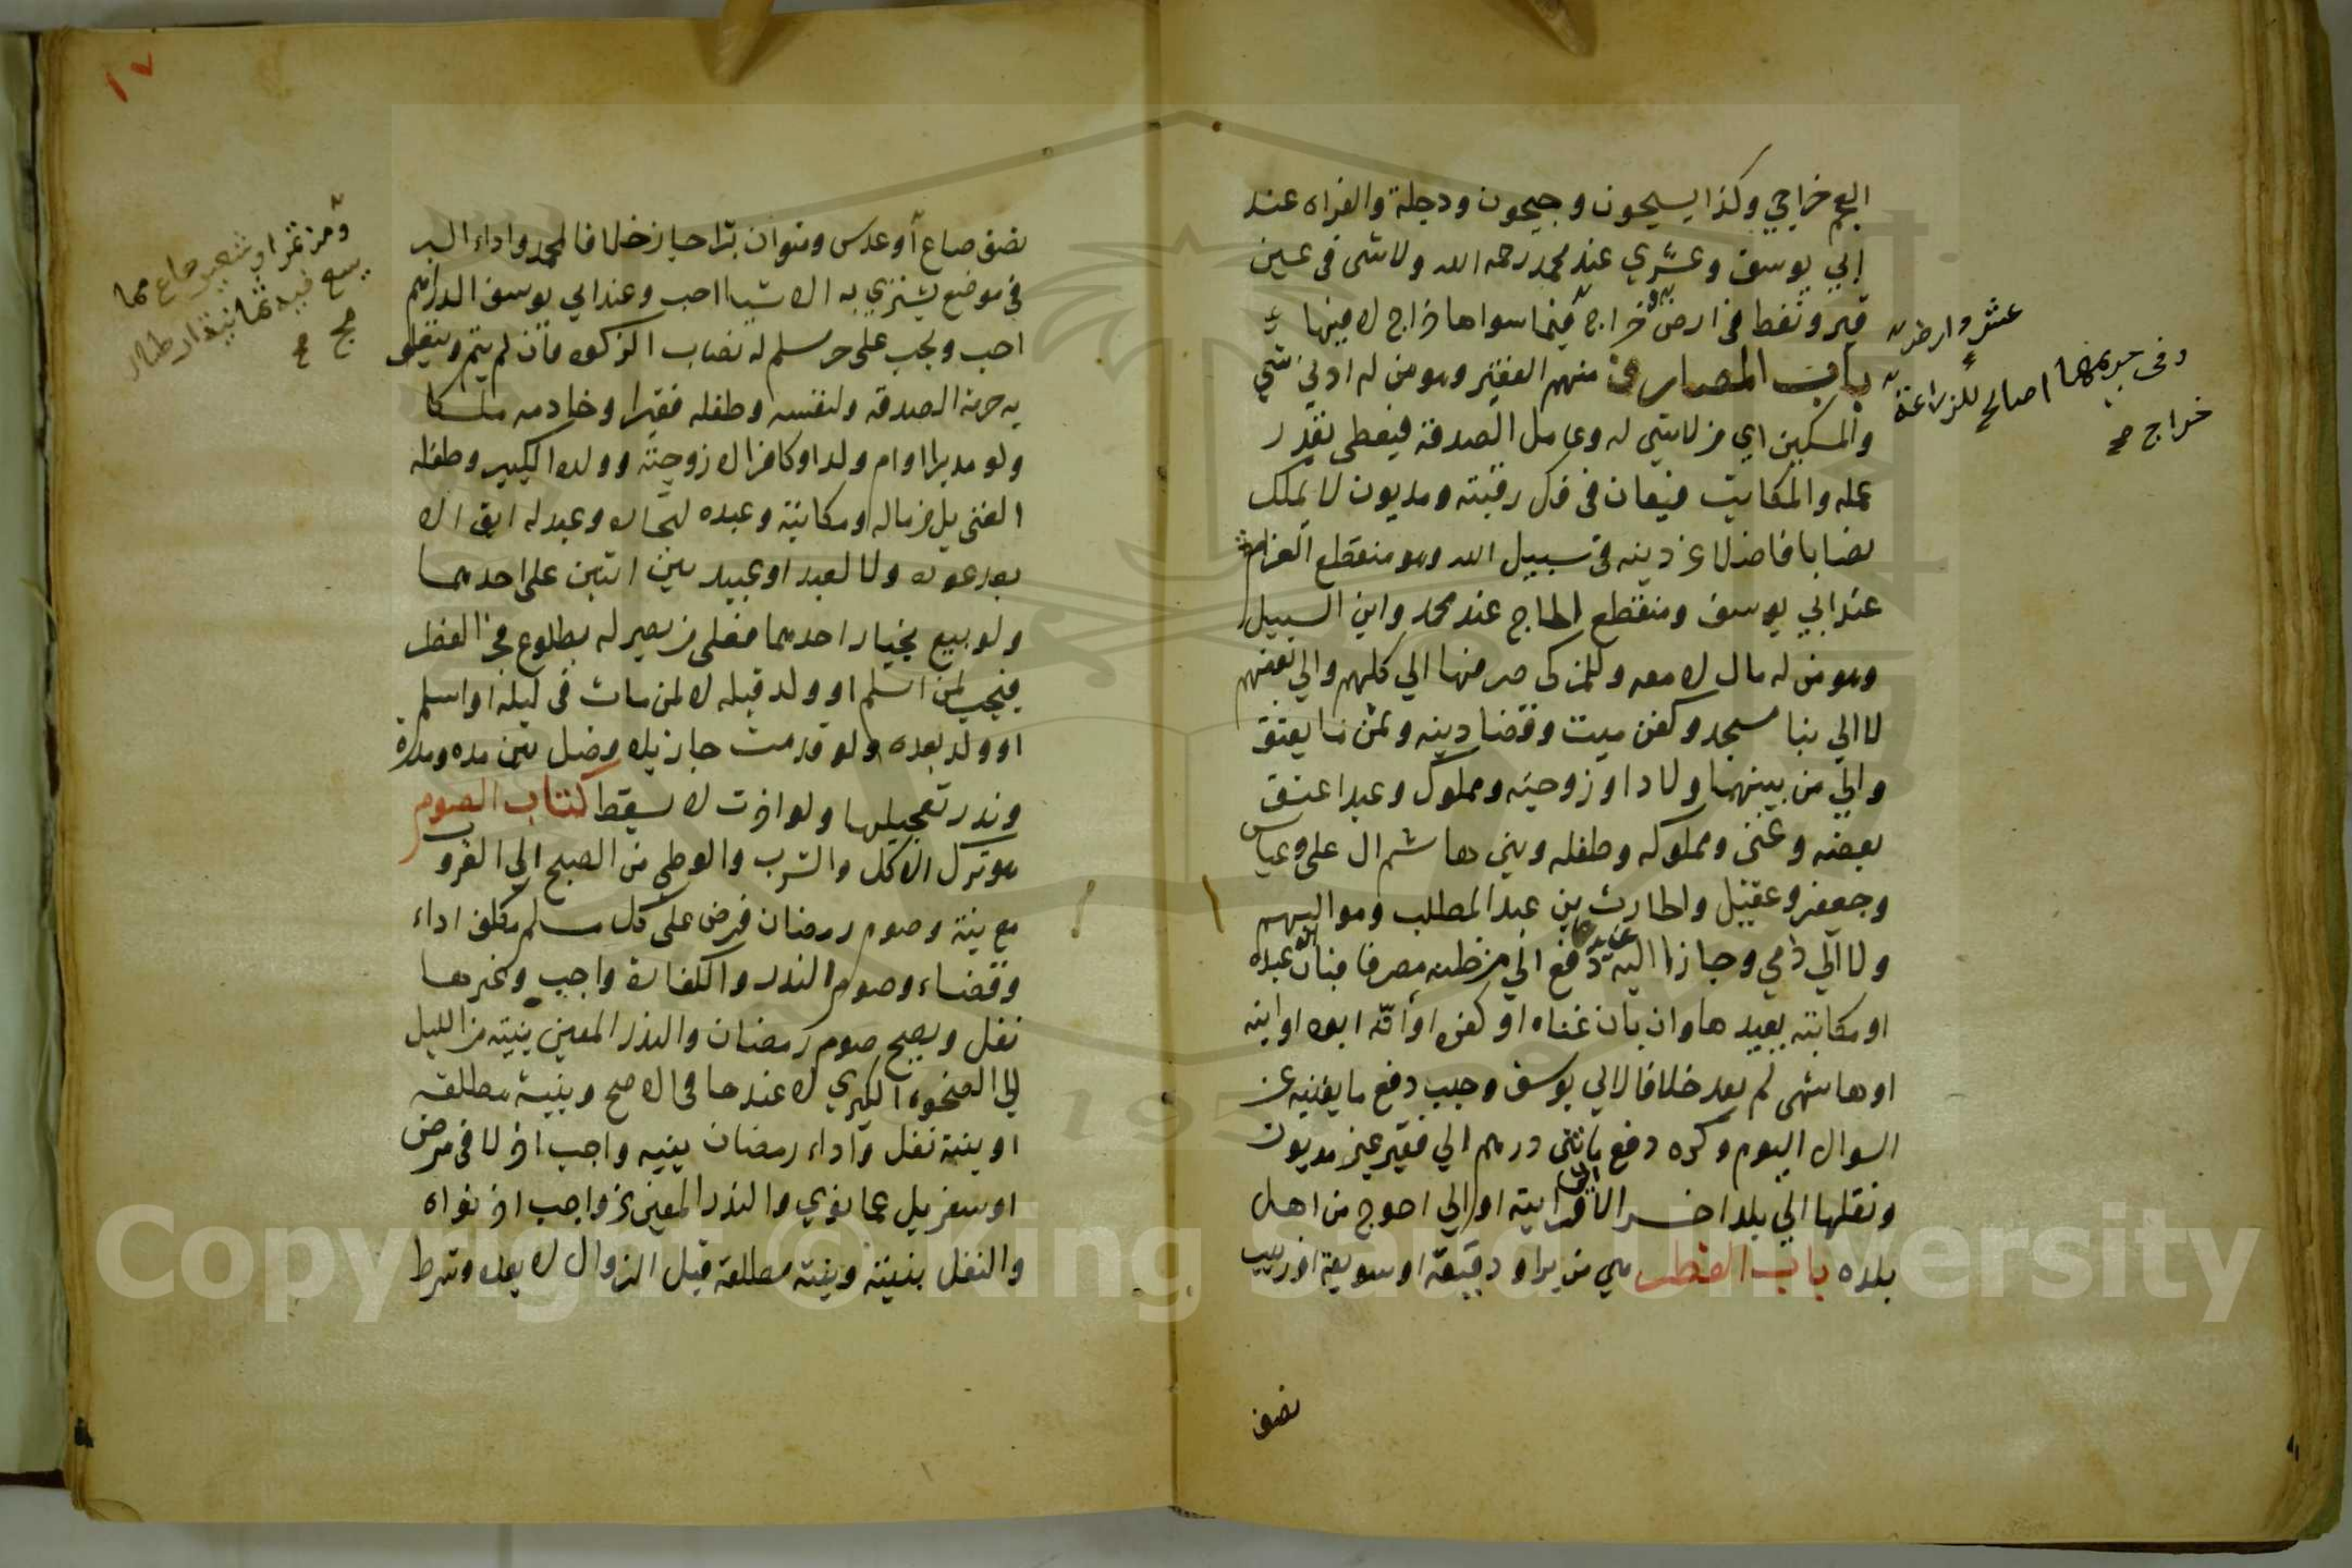 العجم خراجي وكذا يسيحون وجيحون ودجلة والفراه عند
ابي يوسف وعشري عند محمد رحمه الله ولا شي في عين
قير ونفط في ارض خراج فيما سواها خراج لا فيها
باب المصارف منهم الفقير وهو من له ادني شي
والمسكين اي من لا شي له وعامل الصدقة فيعطى بقدر
عمله والمكاتب فيعان في فك رقبته ومديون لا يملك
نصابا فاضلا عن دينه في سبيل الله وهو منقطع الغزاة
عند ابي يوسف ومنقطع الحاج عند محمد وابن السبيل
وهو من له مال لا معه وللمزكى صرفها الي كلهم والي بعضهم
لا الي بنا مسجد وكفن ميت وقضا دينه وثمن ما يعتق
والي من بينهما ولاد او زوجيه ومملوك وعبد اعتق
بعضه وغنى ومملوكه وطفله وبني هاشم ال على وعباس
وجعفر وعقيل والحارث بن عبد المطلب ومواليهم
ولا الي ذمي وجاز غيرها اليه دفع الي من ظنه مصرفا فبان انه عبده
او مكاتبه يعيدها وان بان غناه او كفره او انه ابوه او ابنه
او هاشمى لم يعد خلافا لابي يوسف وحبب دفع ما يغنيه عن
السوال اليوم وكره دفع مائتى درهم الي فقير غير مديون
ونقلها الي بلد اخر الا الى قرابته او الي احوج من اهل
بلده باب الفطر هي من بر او دقيقه او سويقه او زبيب
نصف
عشر وارض
وفى حريمهما الصالح للزراعة
خراج صح
١٧
نصف صاع او عدس ومنوان برا جاز خلافا لمحمد واداء البر
في موضع يشتري به الاشيا احب وعند ابي يوسف الدراهم
احب ويجب على حر مسلم له نصاب الزكوة فان لم يتم ويتعلق
به حرمة الصدقه ولنفسه وطفله فقيرا وخادمه ملكا
ولو مدبرا او ام ولد او كافرا لا زوجته وولده الكبير وطفله
الغنى بل من ماله ومكاتبه وعبده للتجاره وعبد له ابق الا
بعد عوده ولا لعبد او عبيد بين اثنين على احدهما
ولو بيع بخيار احدهما فعلى من يصير له بطلوع فجر الفطر
فيجب لمن اسلم او ولد قبله لا لمن مات في ليله او اسلم
او ولد بعده ولو قدمت جاز بلا فصل بين مده ومده
وندر تعجيلها ولو اخرت لا يسقط كتاب الصوم
هو ترك الاكل والشرب والوطى من الصبح الي الغروب
مع نية وصوم رمضان فرض على كل مسلم مكلف اداء
وقضاء وصوم النذر والكفارة واجب وغيرها
نفل ويصح صوم رمضان والنذر المعين بنيته من الليل
الي الضحوه الكبري لا عندها في الاصح وبنية مطلقه
او بنية نفل واداء رمضان بنيه واجب اخر لا في مرض
او سفر بل عما نوي والنذر المعين عن واجب اخر نواه
والنفل بنيته وبنية مطلقة قبل الزوال لا بعده وشرط
ومن تمر او شعير صاع مما
يسع فيه ثمانية ارطال
صح
Copyright © King Saud University